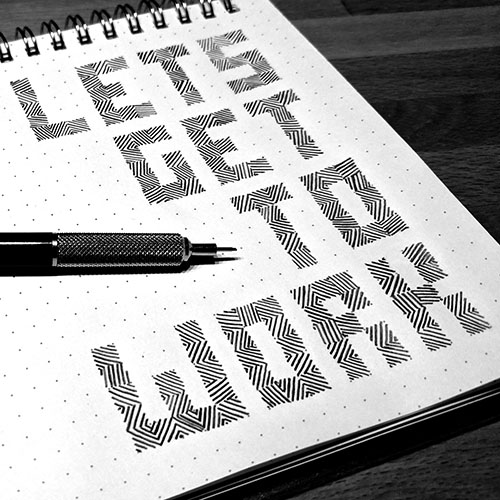 LETS
GET
TO
WORK